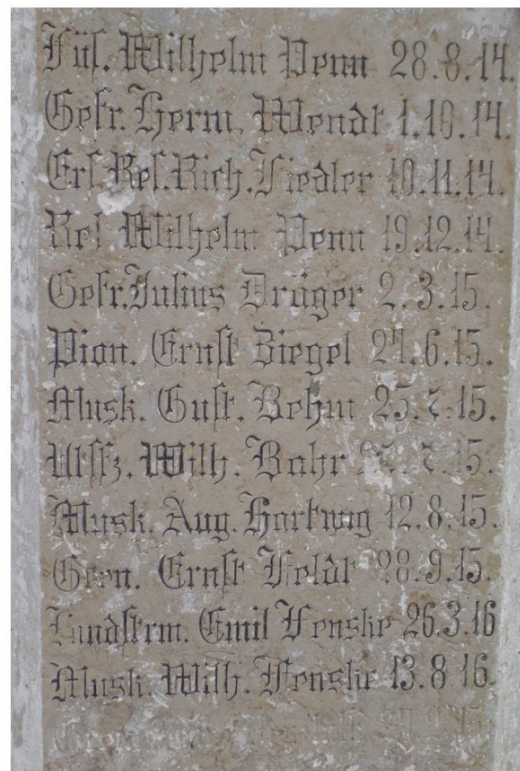 Füs. Wilhelm Penn 28.8.14.
Gefr. Herm. Wendt 1.10.14.
Ers. Res. Rich. Fiedler 10.11.14.
Res. Wilhelm Penn 19.12.14.
Gefr. Julius Dräger 2.3.15.
Pion. Ernst Ziegel 27.6.15.
Musk. Gust. Behm 25.7.15.
Utffz. Wilh. Bahr 7.15.
Musk. Aug. Hartwig 12.8.15.
Gren. Ernst Feldt 28.9.15.
Landstrm. Emil Fenske 26.3.16
Musk. Wilh. Fenske 13.8.16.